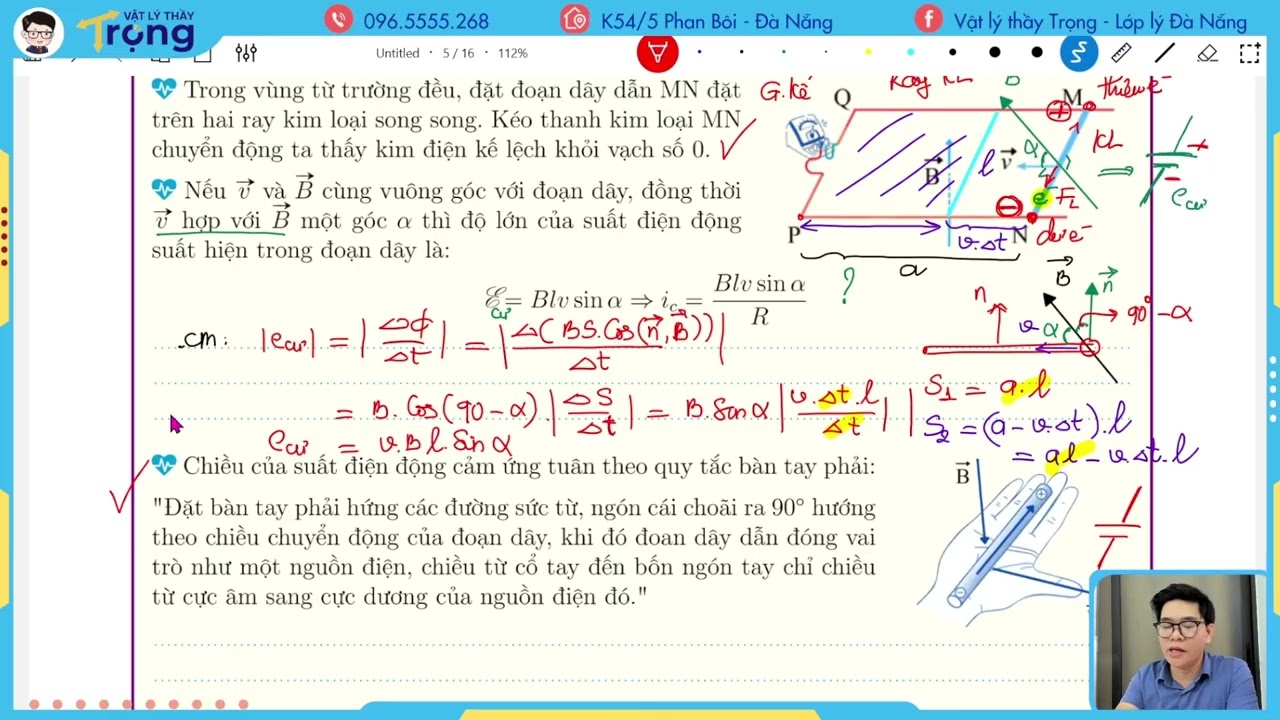 VẬT LÝ THẦY
Trọng
096.5555.268
K54/5 Phan Bôi - Đà Nẵng
Vật lý thầy Trọng - Lớp lý Đà Nẵng
Untitled • 5 / 16 • 112%
Trong vùng từ trường đều, đặt đoạn dây dẫn MN đặt
trên hai ray kim loại song song. Kéo thanh kim loại MN
chuyển động ta thấy kim điện kế lệch khỏi vạch số 0.
Nếu v⃗ và B⃗ cùng vuông góc với đoạn dây, đồng thời
v⃗ hợp với B⃗ một góc α thì độ lớn của suất điện động
suất hiện trong đoạn dây là:
G.kế
Q
B
M
thiếu e
+
α
l
v⃗
B⃗
KL
⇒
+
−
e_cư
e
F_L
−
P
v.Δt
N
dư e
a
ℰ_cư = Blv sin α ⇒ i_c = Blv sin α / R
?
B⃗
n⃗
n
v
α
90° − α
cm: |e_cư| = |Δϕ/Δt| = |Δ(BS.Cos(n⃗, B⃗))/Δt|
= B.Cos(90 − α).|ΔS/Δt| = B.Sin α |v.Δt.l/Δt|
S₁ = a.l
S₂ = (a − v.Δt).l
= al − v.Δt.l
e_cư = v.B.l.Sin α
Chiều của suất điện động cảm ứng tuân theo quy tắc bàn tay phải:
"Đặt bàn tay phải hứng các đường sức từ, ngón cái choãi ra 90° hướng
theo chiều chuyển động của đoạn dây, khi đó đoan dây dẫn đóng vai
trò như một nguồn điện, chiều từ cổ tay đến bốn ngón tay chỉ chiều
từ cực âm sang cực dương của nguồn điện đó."
B⃗
+
−